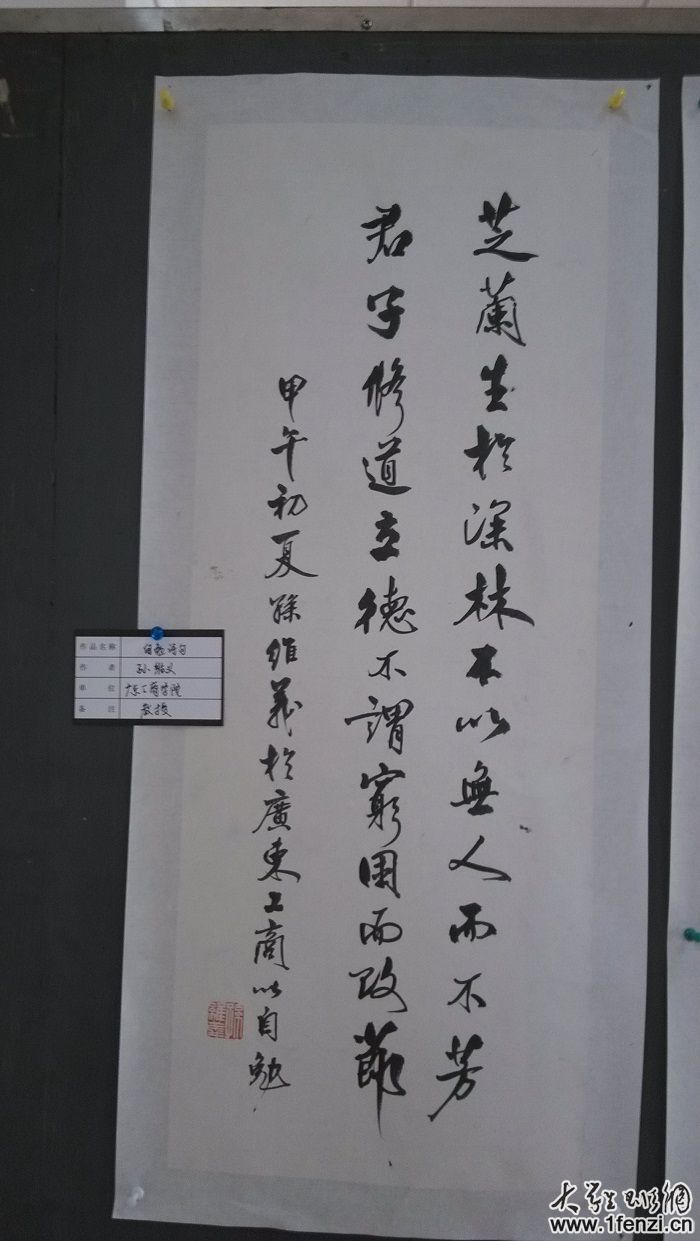 芝蘭生於深林不以無人而不芳
君子修道立德不謂窮困而改節
甲午初夏孫維義於廣東工商以自勉
作品名称 自勉诗句
作者 孙维义
单位 广东工商学院
备注 教授
大学生班级網
www.1fenzi.cn